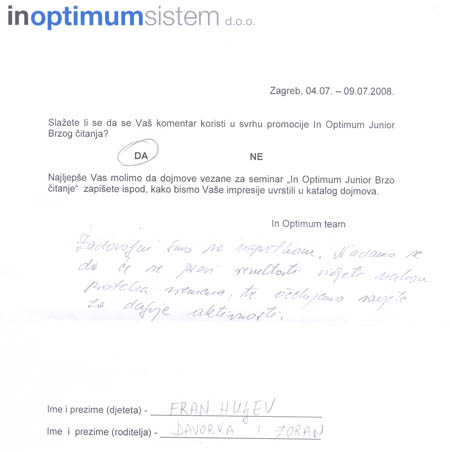 inoptimumsistem d.o.o.
Zagreb, 04.07. – 09.07.2008.
Slažete li se da se Vaš komentar koristi u svrhu promocije In Optimum Junior
Brzog čitanja?
DA NE
Najljepše Vas molimo da dojmove vezane za seminar „In Optimum Junior Brzo
čitanje“ zapišete ispod, kako bismo Vaše impresije uvrstili u katalog dojmova.
In Optimum team
Zadovoljni smo sa napretkom. Nadamo se
da će se pravi rezultati vidjeti nakon
proteka vremena, te očekujemo savjete
za daljnje aktivnosti.
Ime i prezime (djeteta) - FRAN
Ime i prezime (roditelja) - DAVORKA I ZORAN